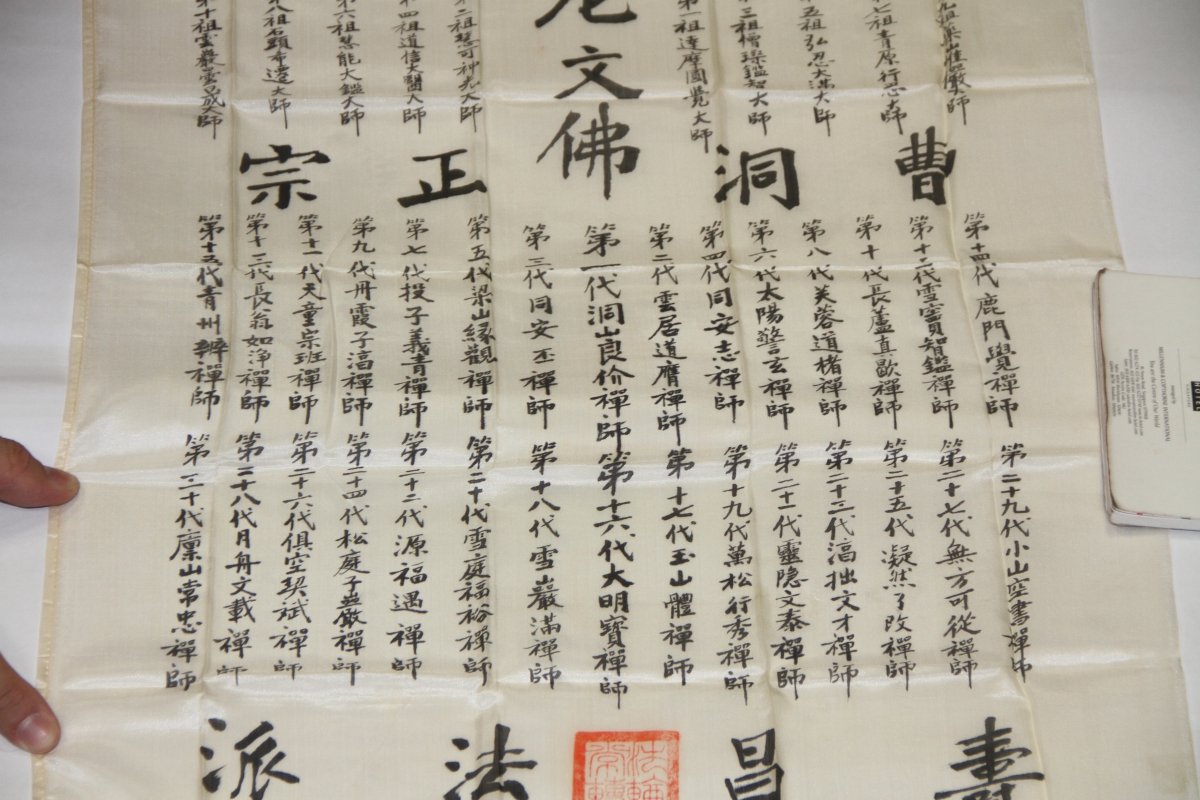 祖藥山惟儼大師
七祖青原行思大師
五祖弘忍大滿大師
三祖僧璨鑑智大師
一祖達摩圓覺大師
文佛
二祖慧可神光大師
四祖道信大醫大師
六祖慧能大鑑大師
八祖石頭希遷大師
第十祖雲巖曇晟大師
曹洞正宗
第十四代鹿門覺禪師
第十二代雪竇智鑑禪師
第十代長蘆真歇禪師
第八代芙蓉道楷禪師
第六代太陽警玄禪師
第四代同安志禪師
第二代雲居道膺禪師
第一代洞山良价禪師
第三代同安丕禪師
第五代梁山緣觀禪師
第七代投子義青禪師
第九代丹霞子淳禪師
第十一代天童宗珏禪師
第十三代長翁如淨禪師
第十五代青州辨禪師
第二十九代小山座書禪師
第二十七代無方可從禪師
第二十五代凝然了改禪師
第二十三代淳拙文才禪師
第二十一代靈隱文泰禪師
第十九代萬松行秀禪師
第十七代玉山體禪師
第十六代大明寶禪師
第十八代雪巖滿禪師
第二十代雪庭福裕禪師
第二十二代源福遇禪師
第二十四代松庭子嚴禪師
第二十六代俱空契斌禪師
第二十八代月舟文載禪師
第三十代廩山常忠禪師
壽昌法派
You are the Centre of Our World